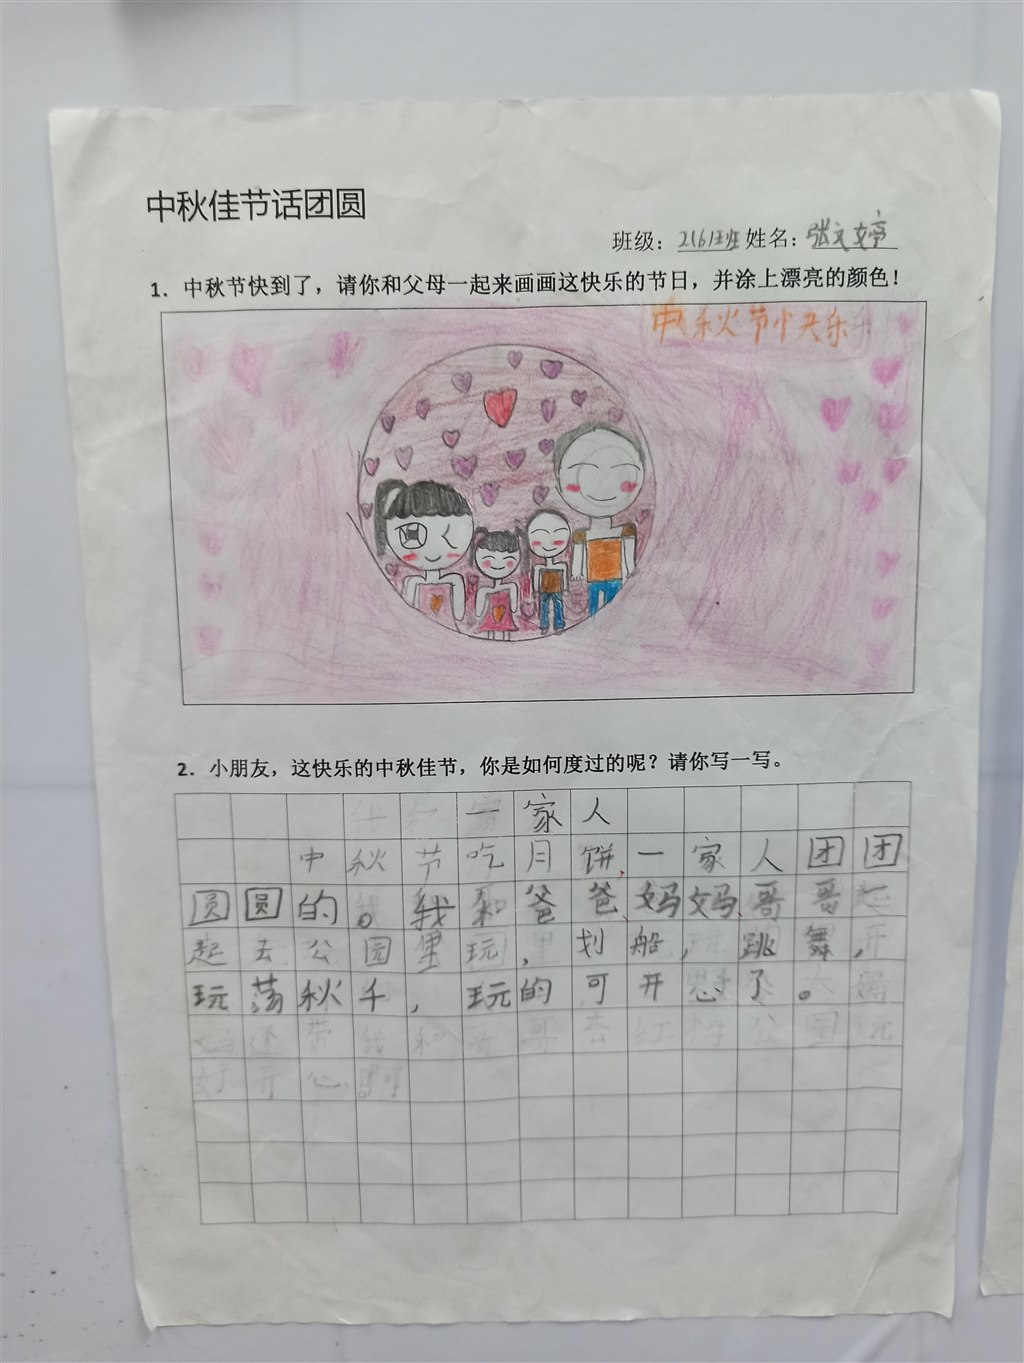 中秋佳节话团圆
班级：2(6)班 姓名：张文婷
1. 中秋节快到了，请你和父母一起来画画这快乐的节日，并涂上漂亮的颜色！
中秋节快乐
2. 小朋友，这快乐的中秋佳节，你是如何度过的呢？请你写一写。
一家人
中秋节吃月饼、一家人团团
圆圆的。我和爸爸、妈妈、哥哥
起去公园里玩，划船，跳舞，
玩荡秋千，玩的可开心了。
妈还带我和哥哥去红梅公园玩
好开心啊